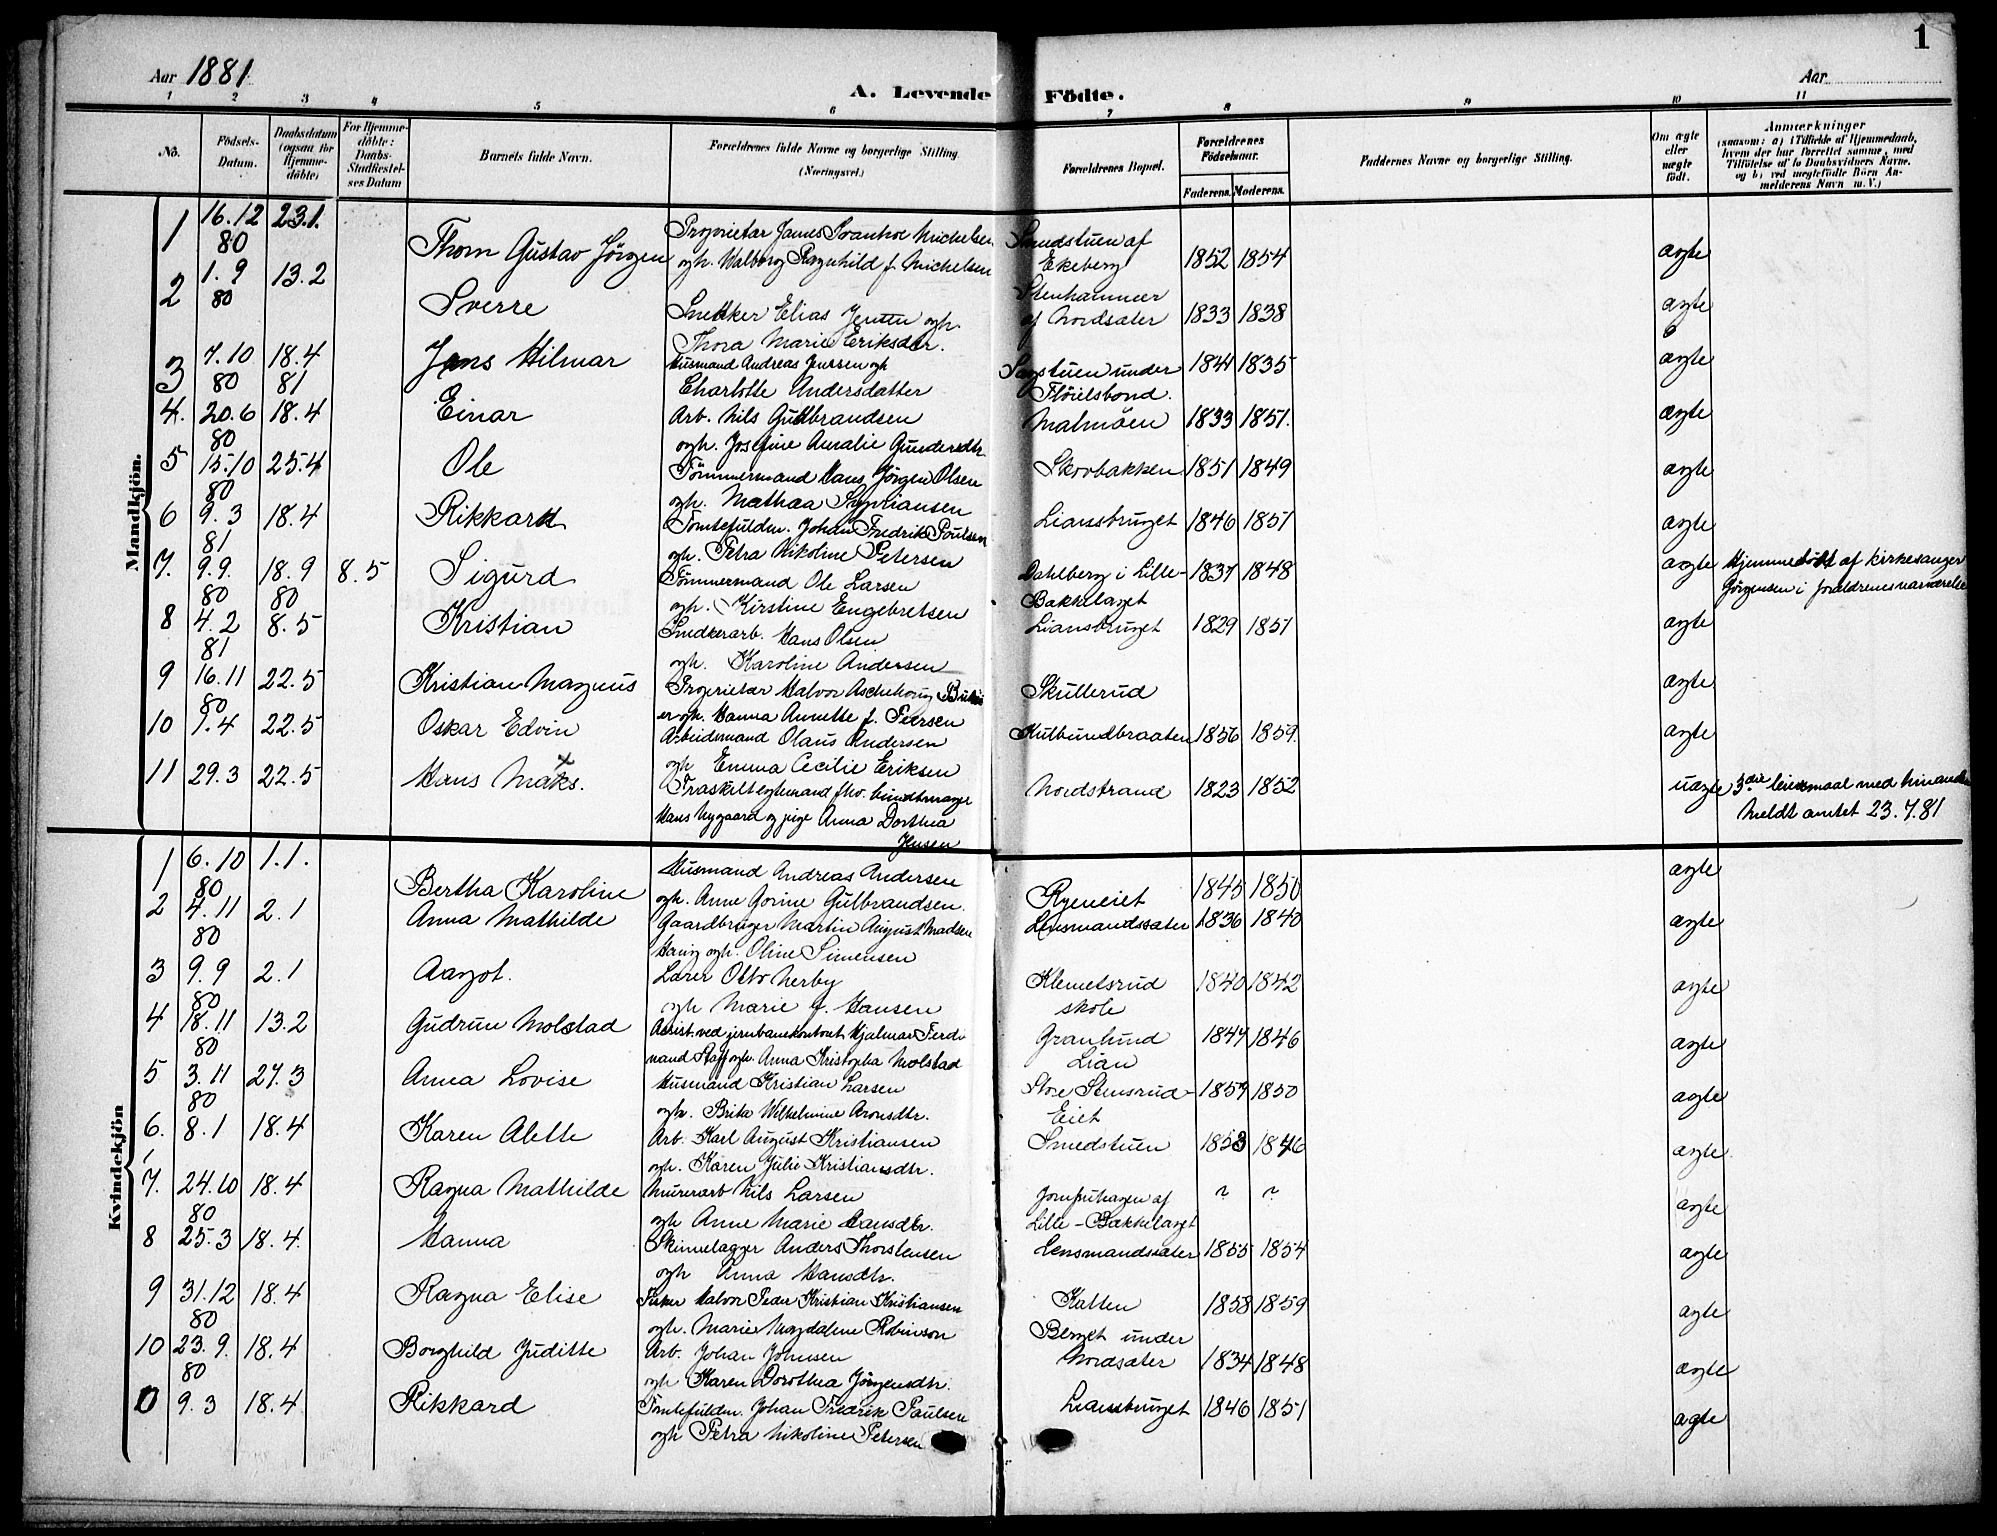 1
Aar 1881
Aar
A. Levende Födte.
1 2 3 4 5 6 7 8 9 10 11
Nö. Födsels-Datum. Daabsdatum (ogsaa for Hjemme-döbte) For Hjemme-döbte: Daabs-Stadfæstel-ses Datum Barnets fulde Navn. Forældrenes fulde Navne og borgerlige Stilling (Næringsvei.) Forældrenes Bopæl. Forældrenes Födselsaar. Faderens. Moderens. Faddernes Navne og borgerlige Stilling. Om ægte eller uægte födt. Anmærkninger (saasom: a) i Tilfælde af Hjemmedaab, hvem der har forrettet samme, med Tilföielse af to Daabsvidners Navne. og b) ved uægtefödte Börn An-melderens Navn m. V.)
Mandkjön.
1 16.12 80 23.1. Thom Gustav Jörgen Proprietær James Ivanhoe Michelsen Smedstuen af Ekeberg 1852 1854 ægte
ogh. Walborg Ragnhild f. Michelsen
2 1.9 80 13.2 Sverre Snekker Elias Jensen ogh. Stenhammer af Nordsæter 1833 1838 ægte
Thora Marie Eriksdtr.
3 7.10 80 18.4 81 Jens Hilmar Husmand Andreas Jenssen ogh Sagstuen under Flöielsbond. 1841 1835 ægte
Charlotte Andersdatter
4. 20.6 80 18.4 Einar Arb. Nils Gulbrandsen Malmöen 1833 1851. ægte
ogh. Josefine Amalie Gundersdtr.
5 15.10 80 25.4 Ole Tömmermand Hans Jörgen Olsen Skovbakken 1851 1849 ægte
ogh. Mathea
6 9.3 81 18.4 Rikkard Tomtefuldm. Johan Fredrik Poulsen Liansbruget 1846 1851 ægte
ogh. Petra Nikoline Petersen
7. 9.9. 80 18.9 80 8.5 Sigurd Tömmermand Ole Larsen Dahlberg i Lille-Bakkelaget 1837 1848 ægte Hjemmedöbt af kirkesanger
ogh. Kirstine Engebretsen Jörgensen i foreldrenes nærværelse
8 4.2 81 8.5 Kristian Snedkerarb. Hans Olsen Liansbruget 1829 1851 ægte
ogh. Karoline Andersen
9 16.11 80 22.5 Kristian Magnus Proprietær Halvor Aschehoug Skullerud ægte
ogh. Hanna Annette f. Persen
10 1.4 22.5 Oskar Edvin Arbeidsmand Olaus Andersen Kulbundbraaten 1856 1859. ægte
ogh Emma Cecilie Eriksen
11 29.3 22.5 Hans Maks. Fraskilt egtemand fhv. Nordstrand 1823 1852 uægte 3die leiermaal med hinanden
Hans Nygaard og pige Anna Dorthea Meldt amtet 23.7.81
Jensen
Kvindekjön
1 6.10 80 1.1. Bertha Karoline Husmand Andreas Andersen Ryeneiet 1845 1850 ægte
ogh. Anne Gorine Gulbrandsen.
2 4.11 80 2.1 Anna Mathilde Gaardbruger Martin August Madsen Lensmandssæter 1836 1840 ægte
Haug ogh. Oline Simensen
3 9.9 80 2.1 Aagot. Lærer Otto Nerby Klemetsrud skole 1840 1842 ægte
ogh Marie f. Hansen
4 18.11 80 13.2 Gudrun Molstad Assist. ved jernbanekontoret Hjalmar Ferdi- Granlund Lian 1847 1846 ægte
nand Staff ogh. Anna Kristopha Molstad
5 3.11 80 27.3 Anna Lovise Husmand Kristian Larsen Store Stensrud-Eiet 1859 1850 ægte
ogh. Brita Wilhelmine Aronsdtr.
6. 8.1 18.4 Karen Alette Arb. Karl August Kristiansen Smedstuen 1853 1846 ægte
ogh. Karen Julie Kristiansdtr.
7. 24.10 80 18.4 Ragna Mathilde Murerarb Nils Larsen Jomfruhagen af Lille-Bækkelaget ? ? ægte
ogh Anne Marie Hansdtr.
8 25.3 18.4. Hanna Skinnelægger Anders Thorstensen Lensmandssæter 1855 1854 ægte
ogh Anna Hansdtr.
9 31.12 80 18.4 Ragna Elise Fisker Halvor Peder Kristian Kristiansen Katten 1858 1859 ægte
ogh. Marie Magdalene Robinson
10 23.9. 80 18.4 Borghild Juditte Arb. Johan Johnsen Berget under Nordsæter 1834 1848 ægte
ogh Karen Dorothea Jörgensdtr.
0 9.3 18.4 Rikkard Tomtefuldm. Johan Fredrik Paulsen Liansbruget 1846 1851 ægte
ogh Petra Nikoline Petersen